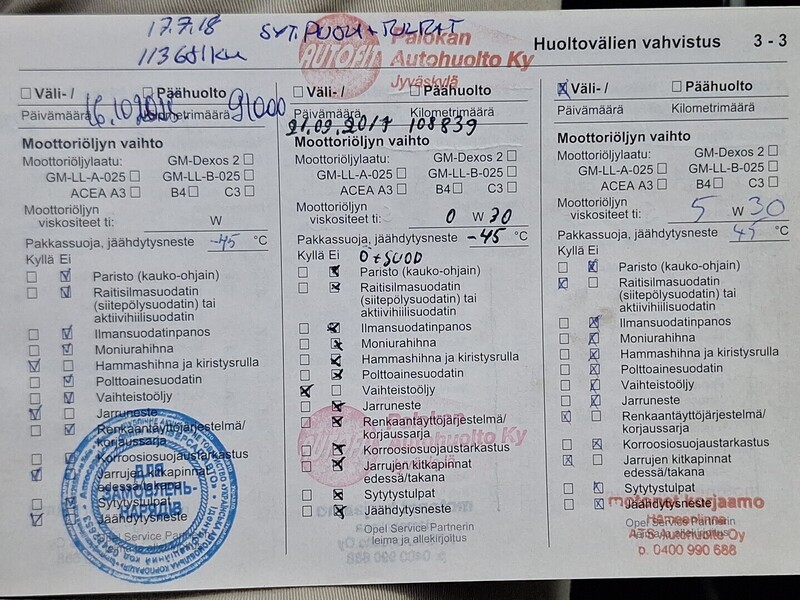 17.7.18 SYT. PUOLA + TULPAT
113681km
AUTOFIT Palokan Autohuolto Ky Jyväskylä
Huoltovälien vahvistus 3 - 3
Väli- / Päähuolto
Päivämäärä Kilometrimäärä
16.10 91000
Moottoriöljyn vaihto
Moottoriöljylaatu: GM-Dexos 2
GM-LL-A-025 GM-LL-B-025
ACEA A3 B4 C3
Moottoriöljyn
viskositeet ti: W
Pakkassuoja, jäähdytysneste -45 °C
Kyllä Ei
Paristo (kauko-ohjain)
Raitisilmasuodatin
(siitepölysuodatin) tai
aktiivihiilisuodatin
Ilmansuodatinpanos
Moniurahihna
Hammashihna ja kiristysrulla
Polttoainesuodatin
Vaihteistoöljy
Jarruneste
Renkaantäyttöjärjestelmä/
korjaussarja
Korroosiosuojaustarkastus
Jarrujen kitkapinnat
edessä/takana
Sytytystulpat
Jäähdytysneste
ДЛЯ
ЗАМОВЛЕНЬ-
НАРЯДІВ
Väli- / Päähuolto
Päivämäärä Kilometrimäärä
21.09.2017 108839
Moottoriöljyn vaihto
Moottoriöljylaatu: GM-Dexos 2
GM-LL-A-025 GM-LL-B-025
ACEA A3 B4 C3
Moottoriöljyn
viskositeet ti: 0 W 30
Pakkassuoja, jäähdytysneste -45 °C
Kyllä Ei Ö + SUOD
Paristo (kauko-ohjain)
Raitisilmasuodatin
(siitepölysuodatin) tai
aktiivihiilisuodatin
Ilmansuodatinpanos
Moniurahihna
Hammashihna ja kiristysrulla
Polttoainesuodatin
Vaihteistoöljy
Jarruneste
Renkaantäyttöjärjestelmä/
korjaussarja
Korroosiosuojaustarkastus
Jarrujen kitkapinnat
edessä/takana
Sytytystulpat
Jäähdytysneste
Opel Service Partnerin
leima ja allekirjoitus
AUTOFIT Palokan Autohuolto Ky Jyväskylä
Väli- / Päähuolto
Päivämäärä Kilometrimäärä
Moottoriöljyn vaihto
Moottoriöljylaatu: GM-Dexos 2
GM-LL-A-025 GM-LL-B-025
ACEA A3 B4 C3
Moottoriöljyn
viskositeet ti: 5 W 30
Pakkassuoja, jäähdytysneste 45 °C
Kyllä Ei
Paristo (kauko-ohjain)
Raitisilmasuodatin
(siitepölysuodatin) tai
aktiivihiilisuodatin
Ilmansuodatinpanos
Moniurahihna
Hammashihna ja kiristysrulla
Polttoainesuodatin
Vaihteistoöljy
Jarruneste
Renkaantäyttöjärjestelmä/
korjaussarja
Korroosiosuojaustarkastus
Jarrujen kitkapinnat
edessä/takana
Sytytystulpat
Jäähdytysneste
Opel Service Partnerin
leima ja allekirjoitus
motonet korjaamo
Hämeenlinna
ATS Autohuolto Oy
p. 0400 990 688